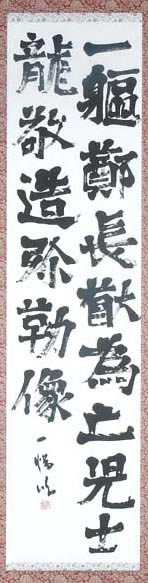 一軀鄭長猷為亡児士
龍敬造弥勒像